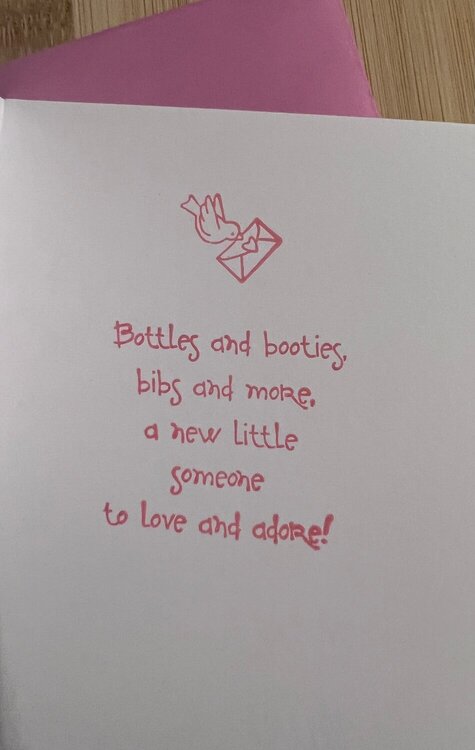 Bottles and booties,
bibs and more,
a new little
someone
to love and adore!